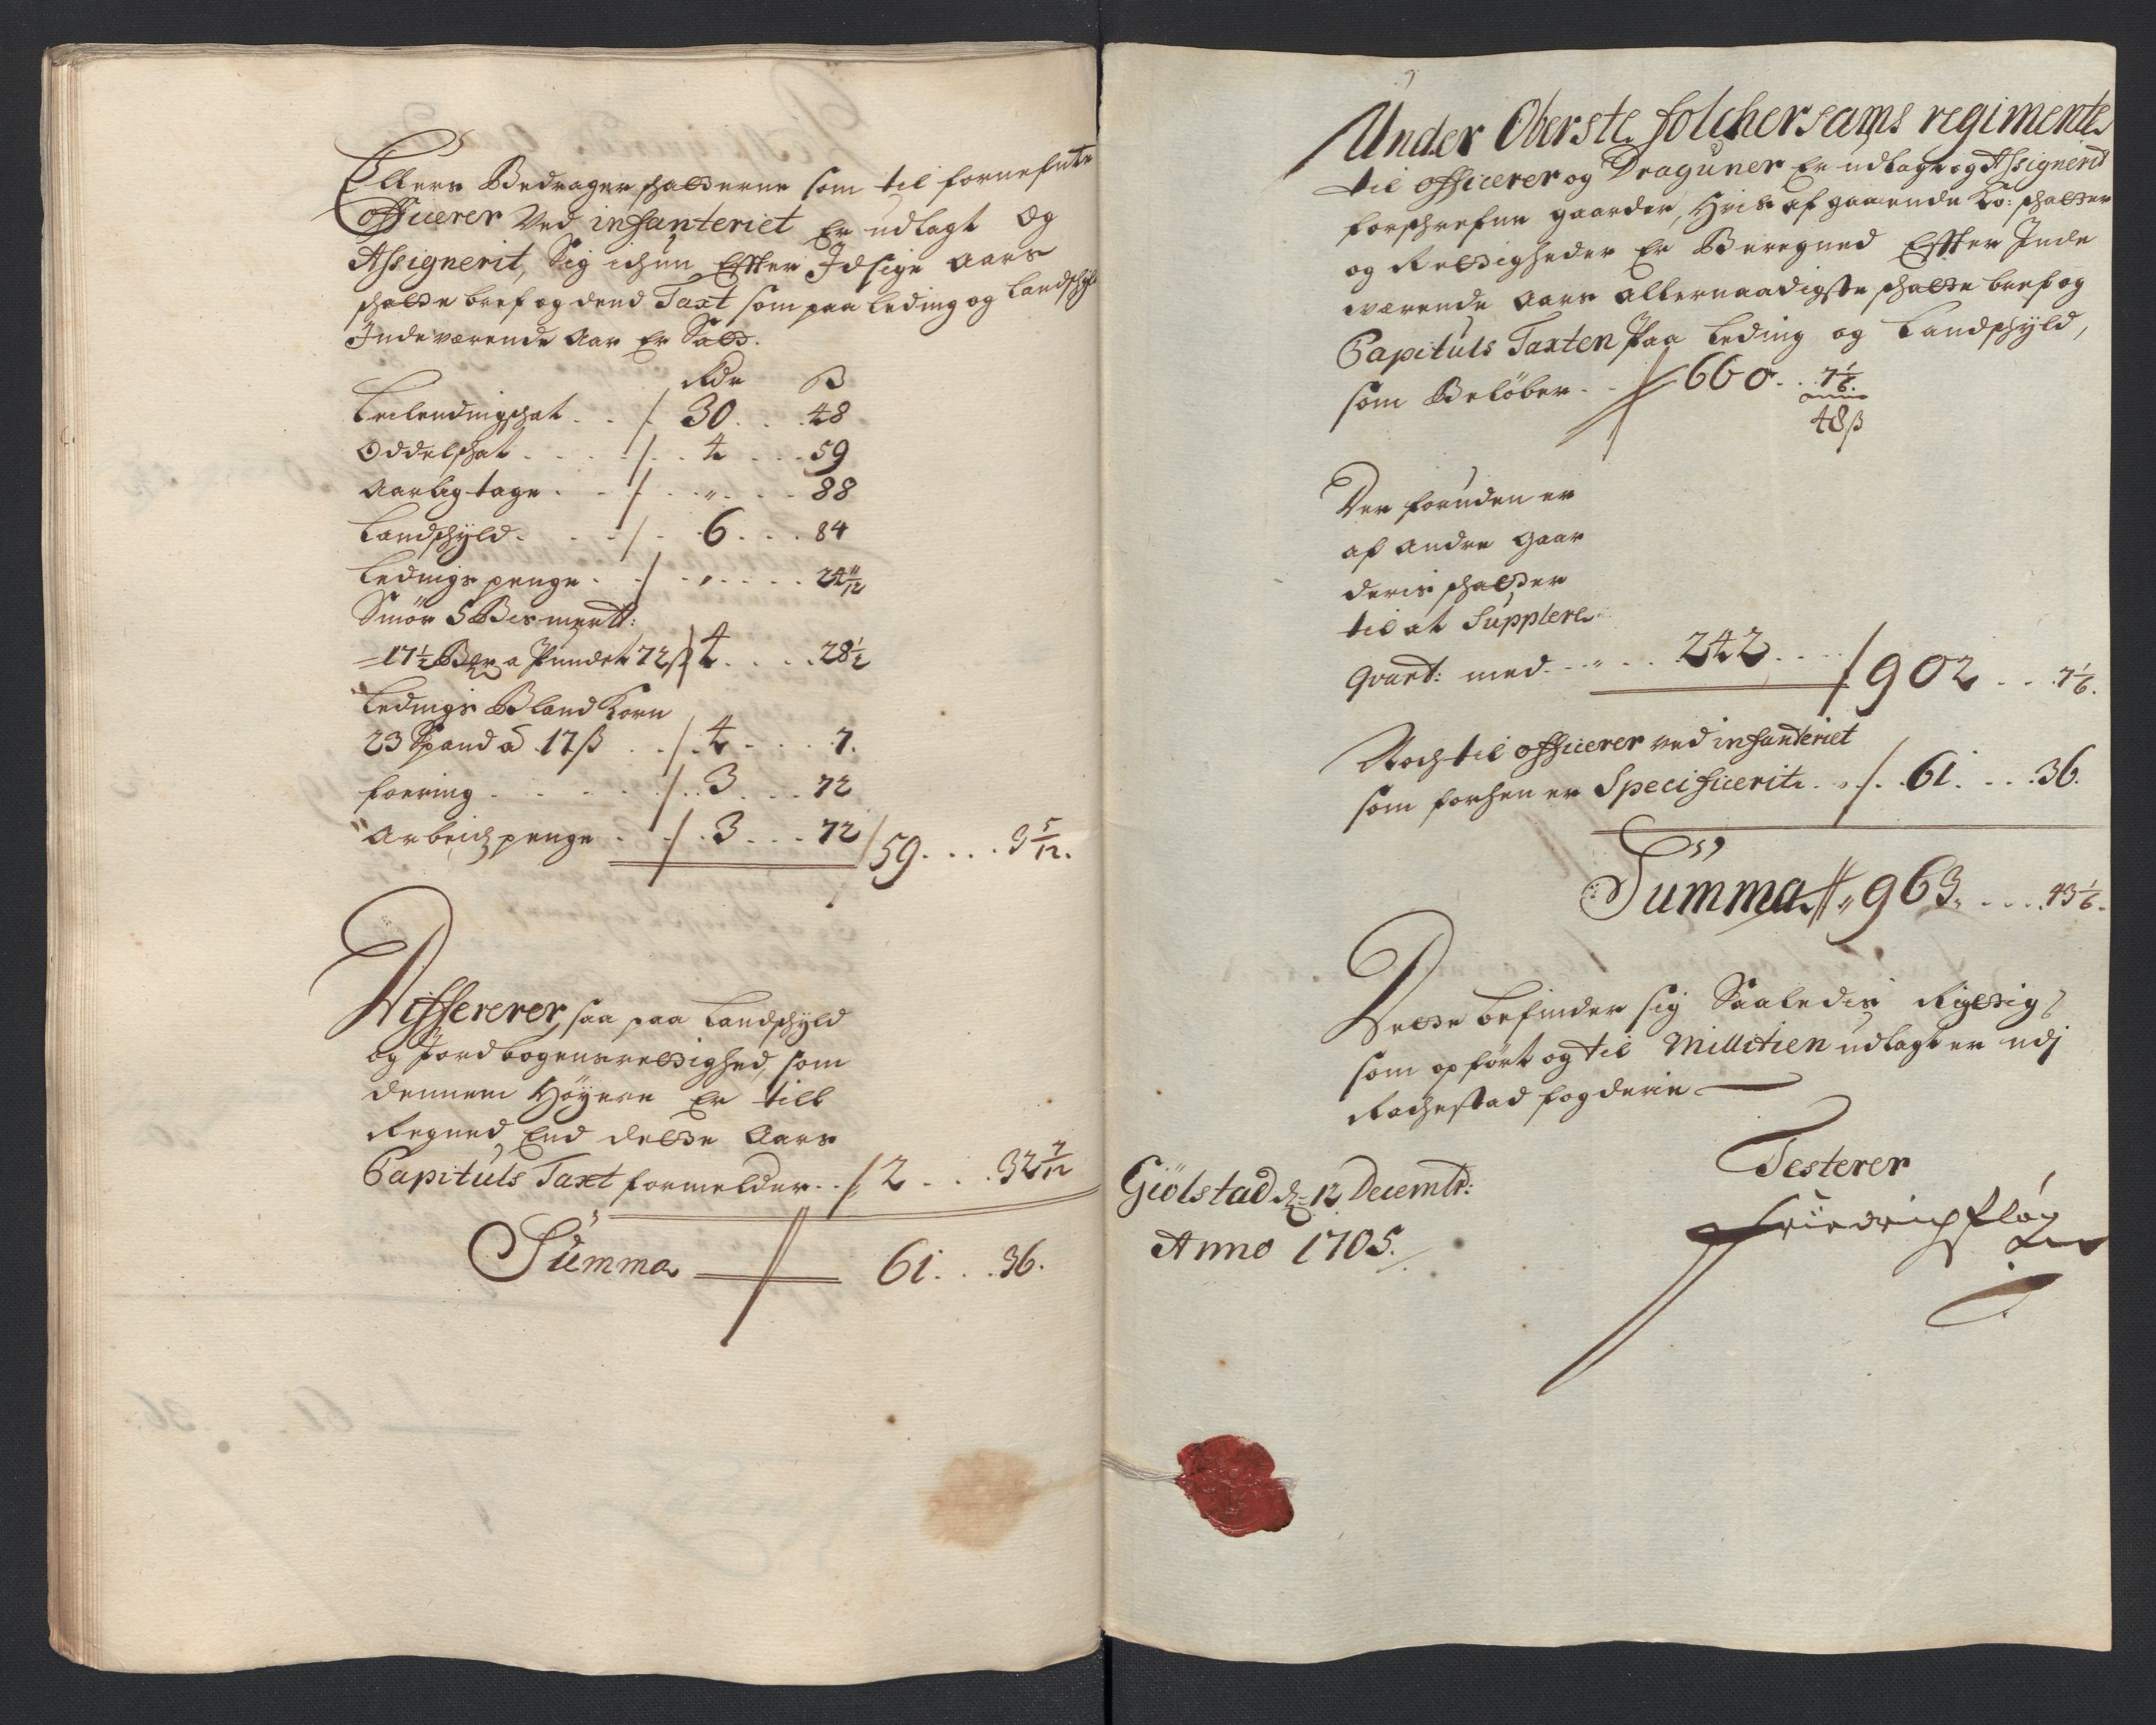 Ellers Bedrager schatterne som til fornefnte
officerer Ved infanteriet Er udlagt og
Assignerit, Sig ichun Effter Idsige Aars
schatte bref og dend Taxt som paa leding og Landschyld
Indeværende Aar Er Satt.
Rdr ß
Leilendingschat . . / 30 . . . 48
Oddelschat . . . . / . . 4 . . . 59
Aarlig tage . . . / . . „ . . . 88
Landschyld . . . / . 6 . . . 84
Ledings penge . . / . „ . . . . 24 11/12
Smör 5 Bismertt:
17 1/2 Mrk a Pundet 72 ß / 4 . . . . 28 1/2
Ledings Bland Korn
23 Spand a 17 ß . . / . 4 . . . . 7.
foering . . . . . / . . 3 . . . 72
Arbeids penge . . / . 3 . . . 72 / 59 . . . . 3 5/12.
Differerer, saa paa Landschyld
og Jordbogens rettighed, som
dennem Höyere Er till
Regned End dette Aars
Capituls Taxt formelder . . / 2 . . . 32 7/12
Summa 61 . . . 36.
Under Oberste folchersams regimente
til officerer og Draguner Er udlagt og Assignerit
forschrefne gaarder, Hvis af gaaende Ko: schatter
og Rettigheder Er Beregned Effter Inde
værende Aars allernaadigste schatte bref og
Capituls Taxten Paa Leding og Landschyld,
som Belöber . . 660 . . 7 1/6.
48 ß
Der foruden er
af andre gaar
deris schatter
til at Supplere
Qvant: med . . „ . . 242 . . . / 902 . . . 7 1/6.
Noch til officerer ved infanteriet
som forhen er Specificerit . . / . . 61 . . . 36.
Summa // „ 963 . . . . 43 1/6.
Dette befinder sig Saaledis Rigtig
som opfört og til Militien udlagt er udj
Rachestad fogderie
Testerer
Giölstad d: 12 Decembr:
Anno 1705.